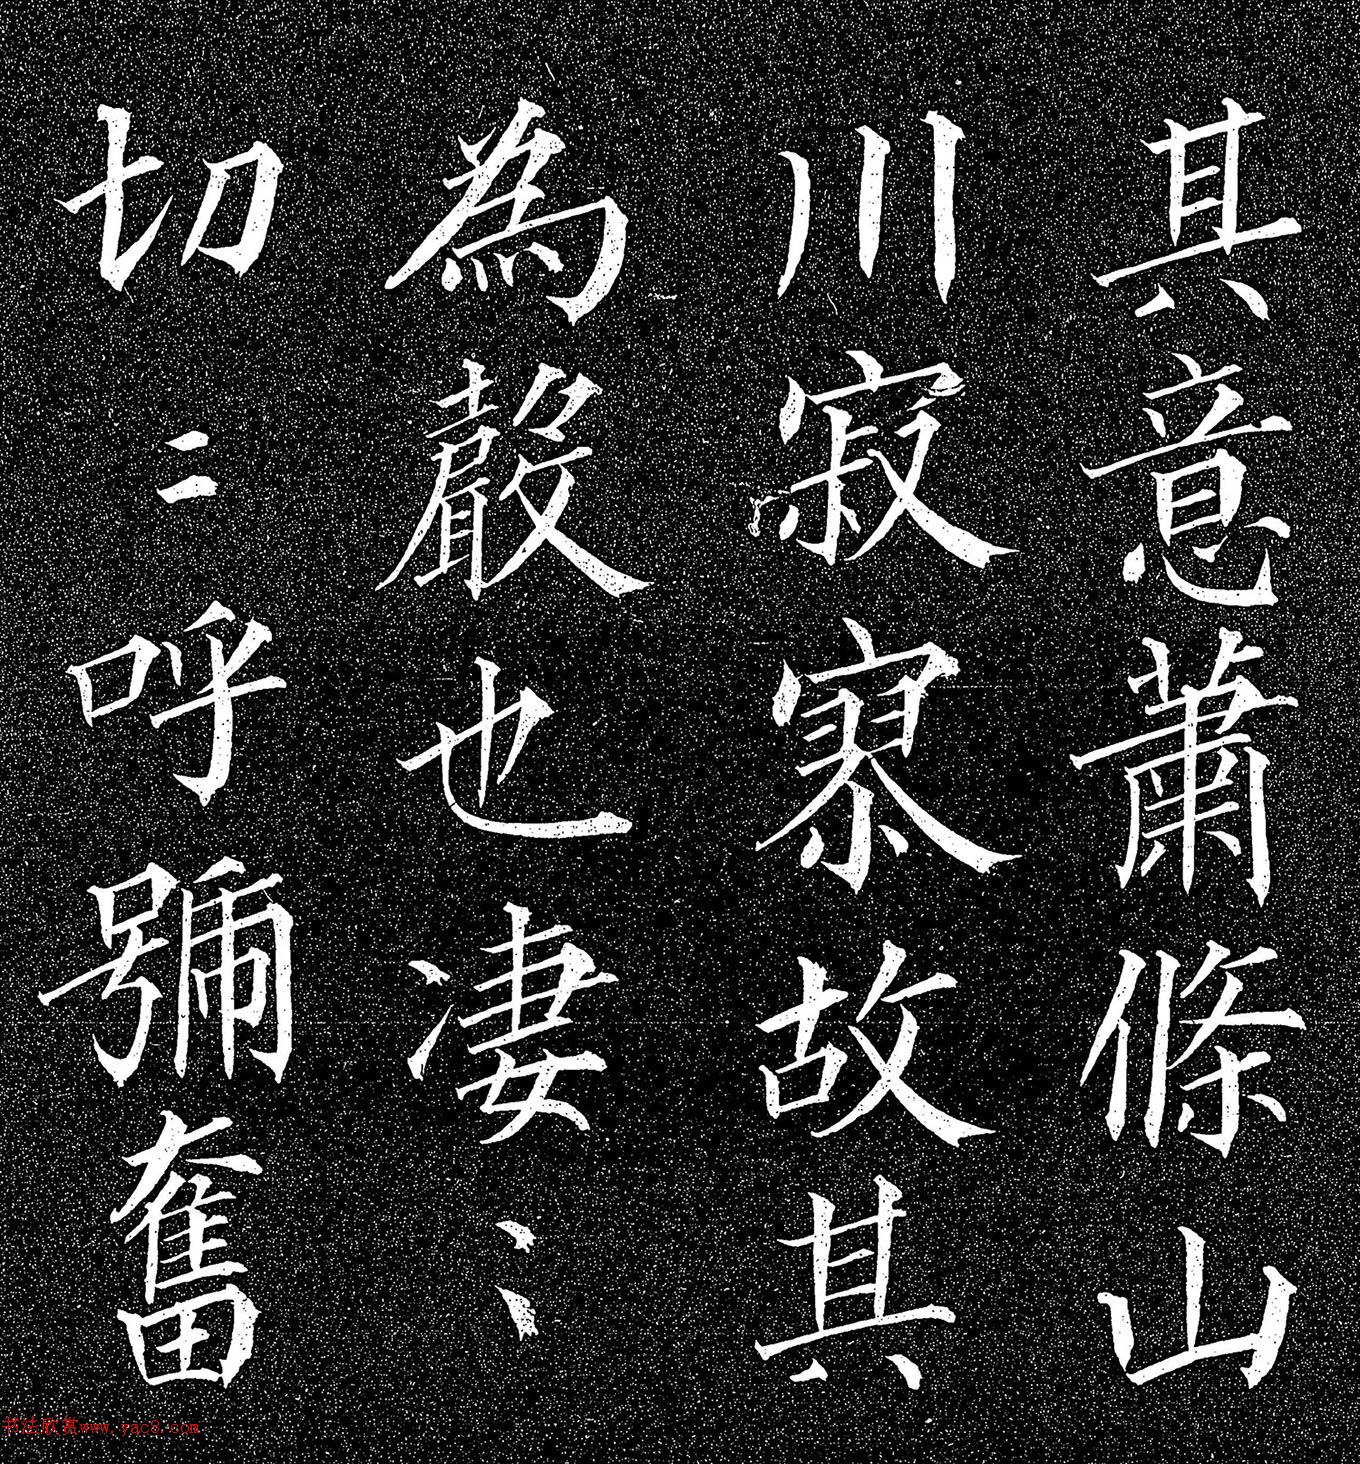 其意蕭條山
川寂寥故其
為聲也淒〻
切〻呼號奮
书法欣赏www.yac8.com